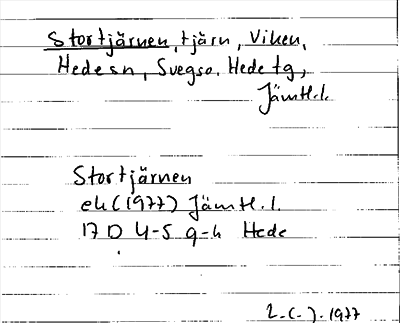 Stortjärnen, tjärn, Viken,
Hede sn, Svegs o. Hede tg,
Jämtl.l.
Stortjärnen
ek (1977) Jämtl.l.
17 D 4-5 g-h Hede
1977